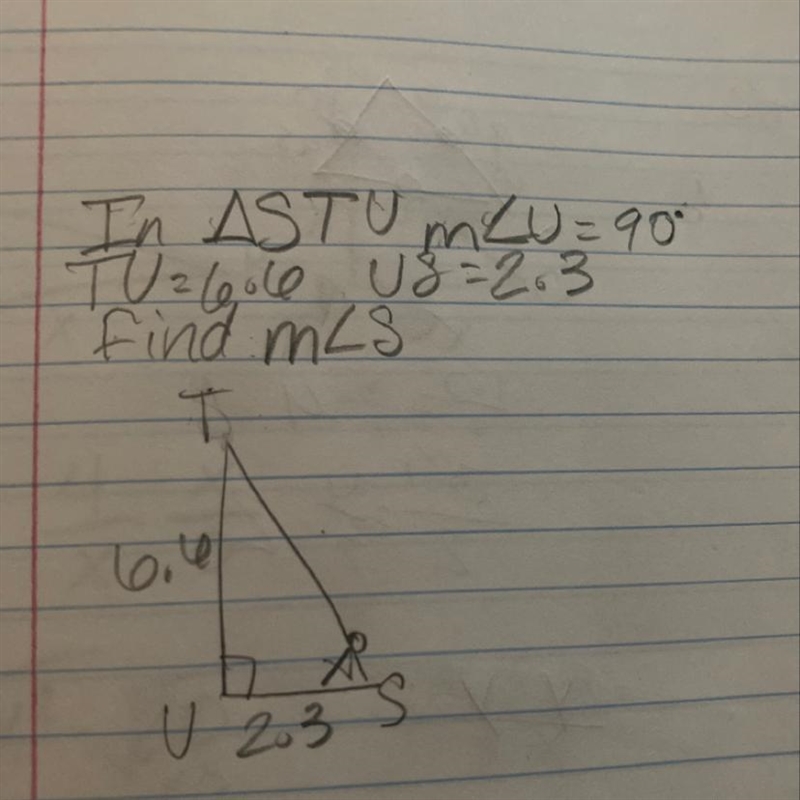 In ΔSTU m∠U=90°
TU=6.6 US=2.3
find m∠S
T
6.6
U 2.3 S